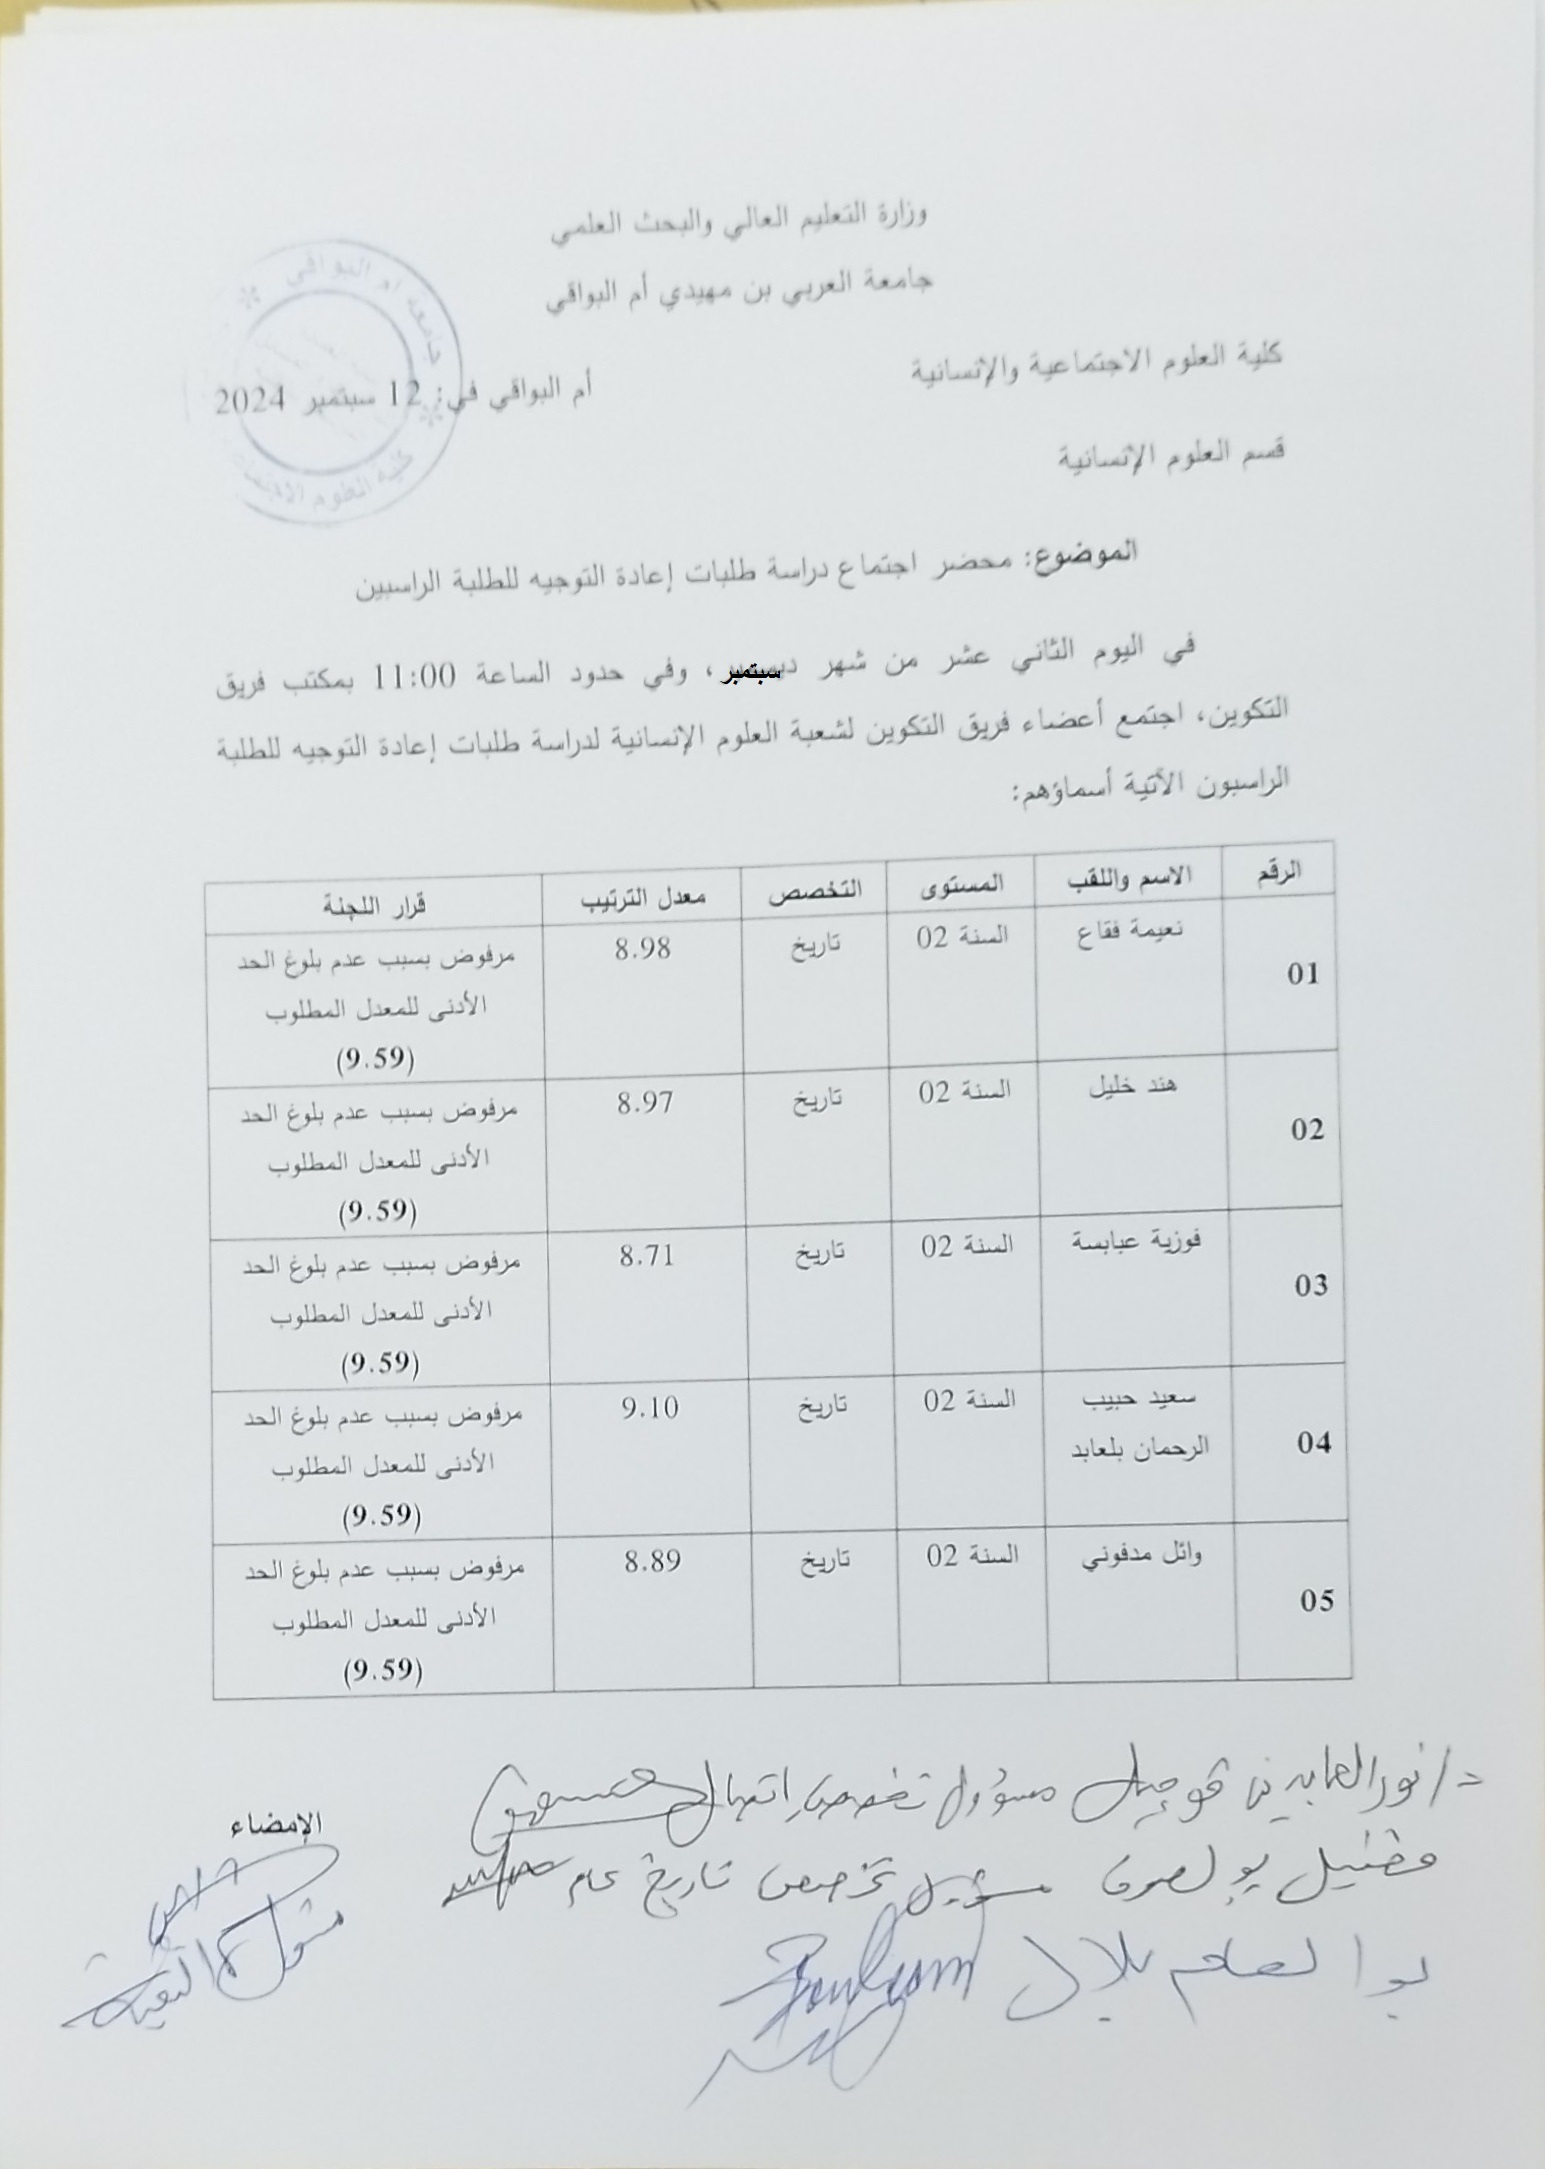 وزارة التعليم العالي والبحث العلمي
جامعة العربي بن مهيدي أم البواقي
كلية العلوم الاجتماعية والإنسانية
أم البواقي في: 12 سبتمبر 2024
جامعة أم البواقي
كلية العلوم
قسم العلوم الإنسانية
الموضوع: محضر اجتماع دراسة طلبات إعادة التوجيه للطلبة الراسبين
في اليوم الثاني عشر من شهر سبتمبر، وفي حدود الساعة 11:00 بمكتب فريق
التكوين، اجتمع أعضاء فريق التكوين لشعبة العلوم الإنسانية لدراسة طلبات إعادة التوجيه للطلبة
الراسبون الآتية أسماؤهم:
الرقم الاسم واللقب المستوى التخصص معدل الترتيب قرار اللجنة
01 نعيمة فقاع السنة 02 تاريخ 8.98 مرفوض بسبب عدم بلوغ الحد
الأدنى للمعدل المطلوب
(9.59)
02 هند خليل السنة 02 تاريخ 8.97 مرفوض بسبب عدم بلوغ الحد
الأدنى للمعدل المطلوب
(9.59)
03 فوزية عبابسة السنة 02 تاريخ 8.71 مرفوض بسبب عدم بلوغ الحد
الأدنى للمعدل المطلوب
(9.59)
04 سعيد حبيب السنة 02 تاريخ 9.10 مرفوض بسبب عدم بلوغ الحد
الرحمان بلعابد الأدنى للمعدل المطلوب
(9.59)
05 وائل مدفوني السنة 02 تاريخ 8.89 مرفوض بسبب عدم بلوغ الحد
الأدنى للمعدل المطلوب
(9.59)
د/ نور العابدين قوجيل مسؤول تخصص اتصال
الإمضاء
فضيل بولصوف مسؤول تخصص تاريخ عام
بلال